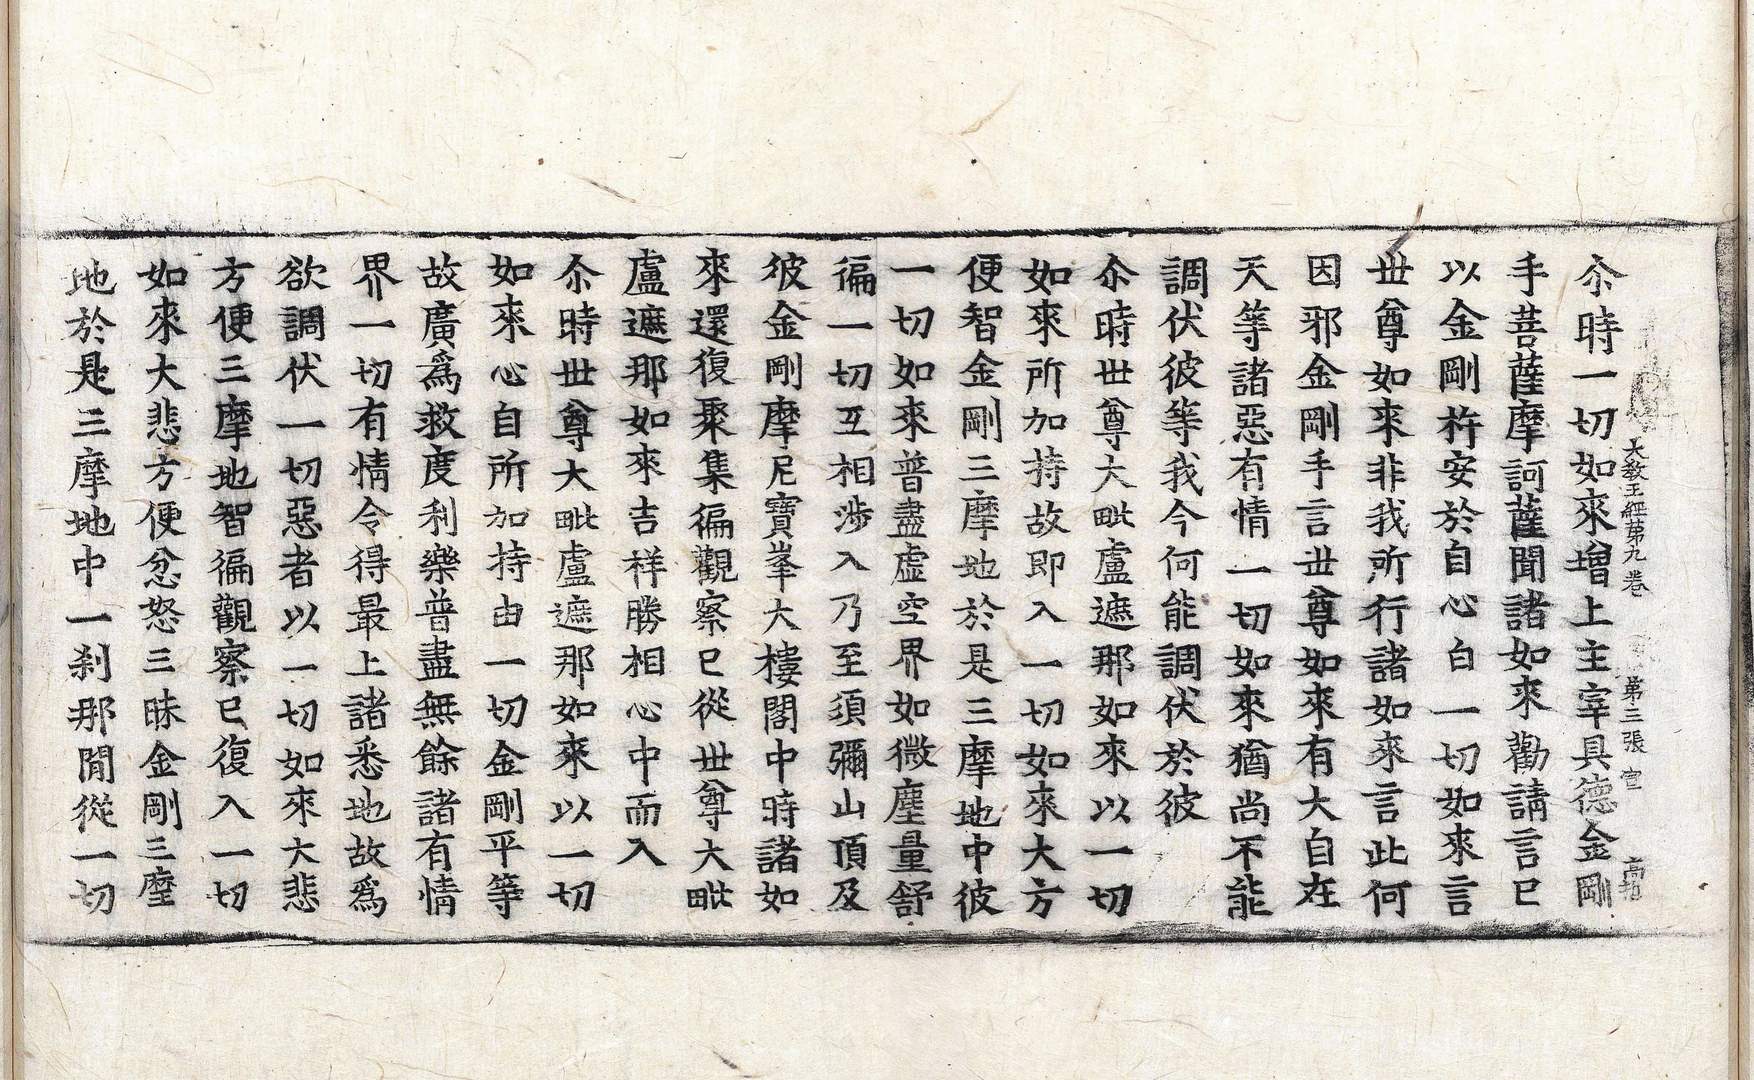 大教王經第九卷　第三張　宣
尒時一切如來增上主宰具德金剛
手菩薩摩訶薩聞諸如來勸請言已
以金剛杵安於自心白一切如來言
世尊如來非我所行諸如來言此何
因邪金剛手言世尊如來有大自在
天等諸惡有情一切如來猶尚不能
調伏彼等我今何能調伏於彼
尒時世尊大毗盧遮那如來以一切
如來所加持故即入一切如來大方
便智金剛三摩地於是三摩地中彼
一切如來普盡虛空界如微塵量舒
徧一切互相涉入乃至須彌山頂及
彼金剛摩尼寶峯大樓閣中時諸如
來還復聚集徧觀察已從世尊大毗
盧遮那如來吉祥勝相心中而入
尒時世尊大毗盧遮那如來以一切
如來心自所加持由一切金剛平等
故廣爲救度利樂普盡無餘諸有情
界一切有情令得最上諸悉地故爲
欲調伏一切惡者以一切如來大悲
方便三摩地智徧觀察已復入一切
如來大悲方便忿怒三昧金剛三摩
地於是三摩地中一刹那閒從一切